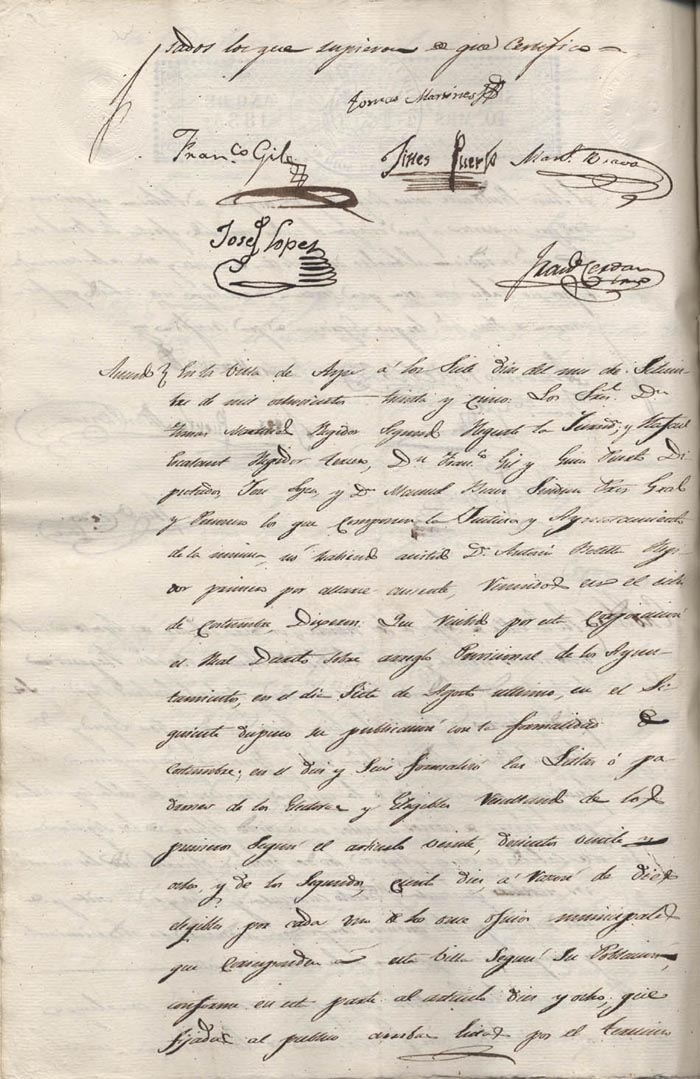 sados los que supieron de que Certifico =
tomas Martines
Franco Gil
Gines Puerto
Manl. Bravo
Josef Lopez
Cerdan
Acuerdo En la Villa de Aspe á los Siete dias del mes de Setiem-
bre de mil ochocientos treinta y cinco: Los Sres. Dn
Tomas Martinez Regidor Segundo Regente la Jurisd.; y Rafael
Regidor tercero, Dn Franco Gil y Gines Puerto Di-
putados, Jose Lopez, y Dn Manuel Bravo Sindicos Pror Gral
y Personero los que componen la Junta y Ayuntamiento
de la misma, no habiendo asistido Dn Antonio Botella Regi-
dor primero por allarse ausente, reunidos en el sitio
de costumbre, Dixeron: Que recibido por esta Corporacion
el Real Decreto sobre arreglo Provisional de los Ayun-
tamientos, en el dia Siete de Agosto ultimo, en el Si-
guiente dispuso su publicacion con la formalidad de
costumbre; en el dia y Seis formalizó las Listas ó pa-
drones de los Electores y Elegibles resultando de los
primeros segun el articulo veinte, doscientos veinte y
ocho, y de los Segundos, ciento diez, á razon de diez
elegibles por cada uno de los once oficios municipales
que corresponden á esta Villa Segun Su Poblacion,
conforme en esta parte al articulo diez y ocho; que
fijadas al publico ambas listas por el termino